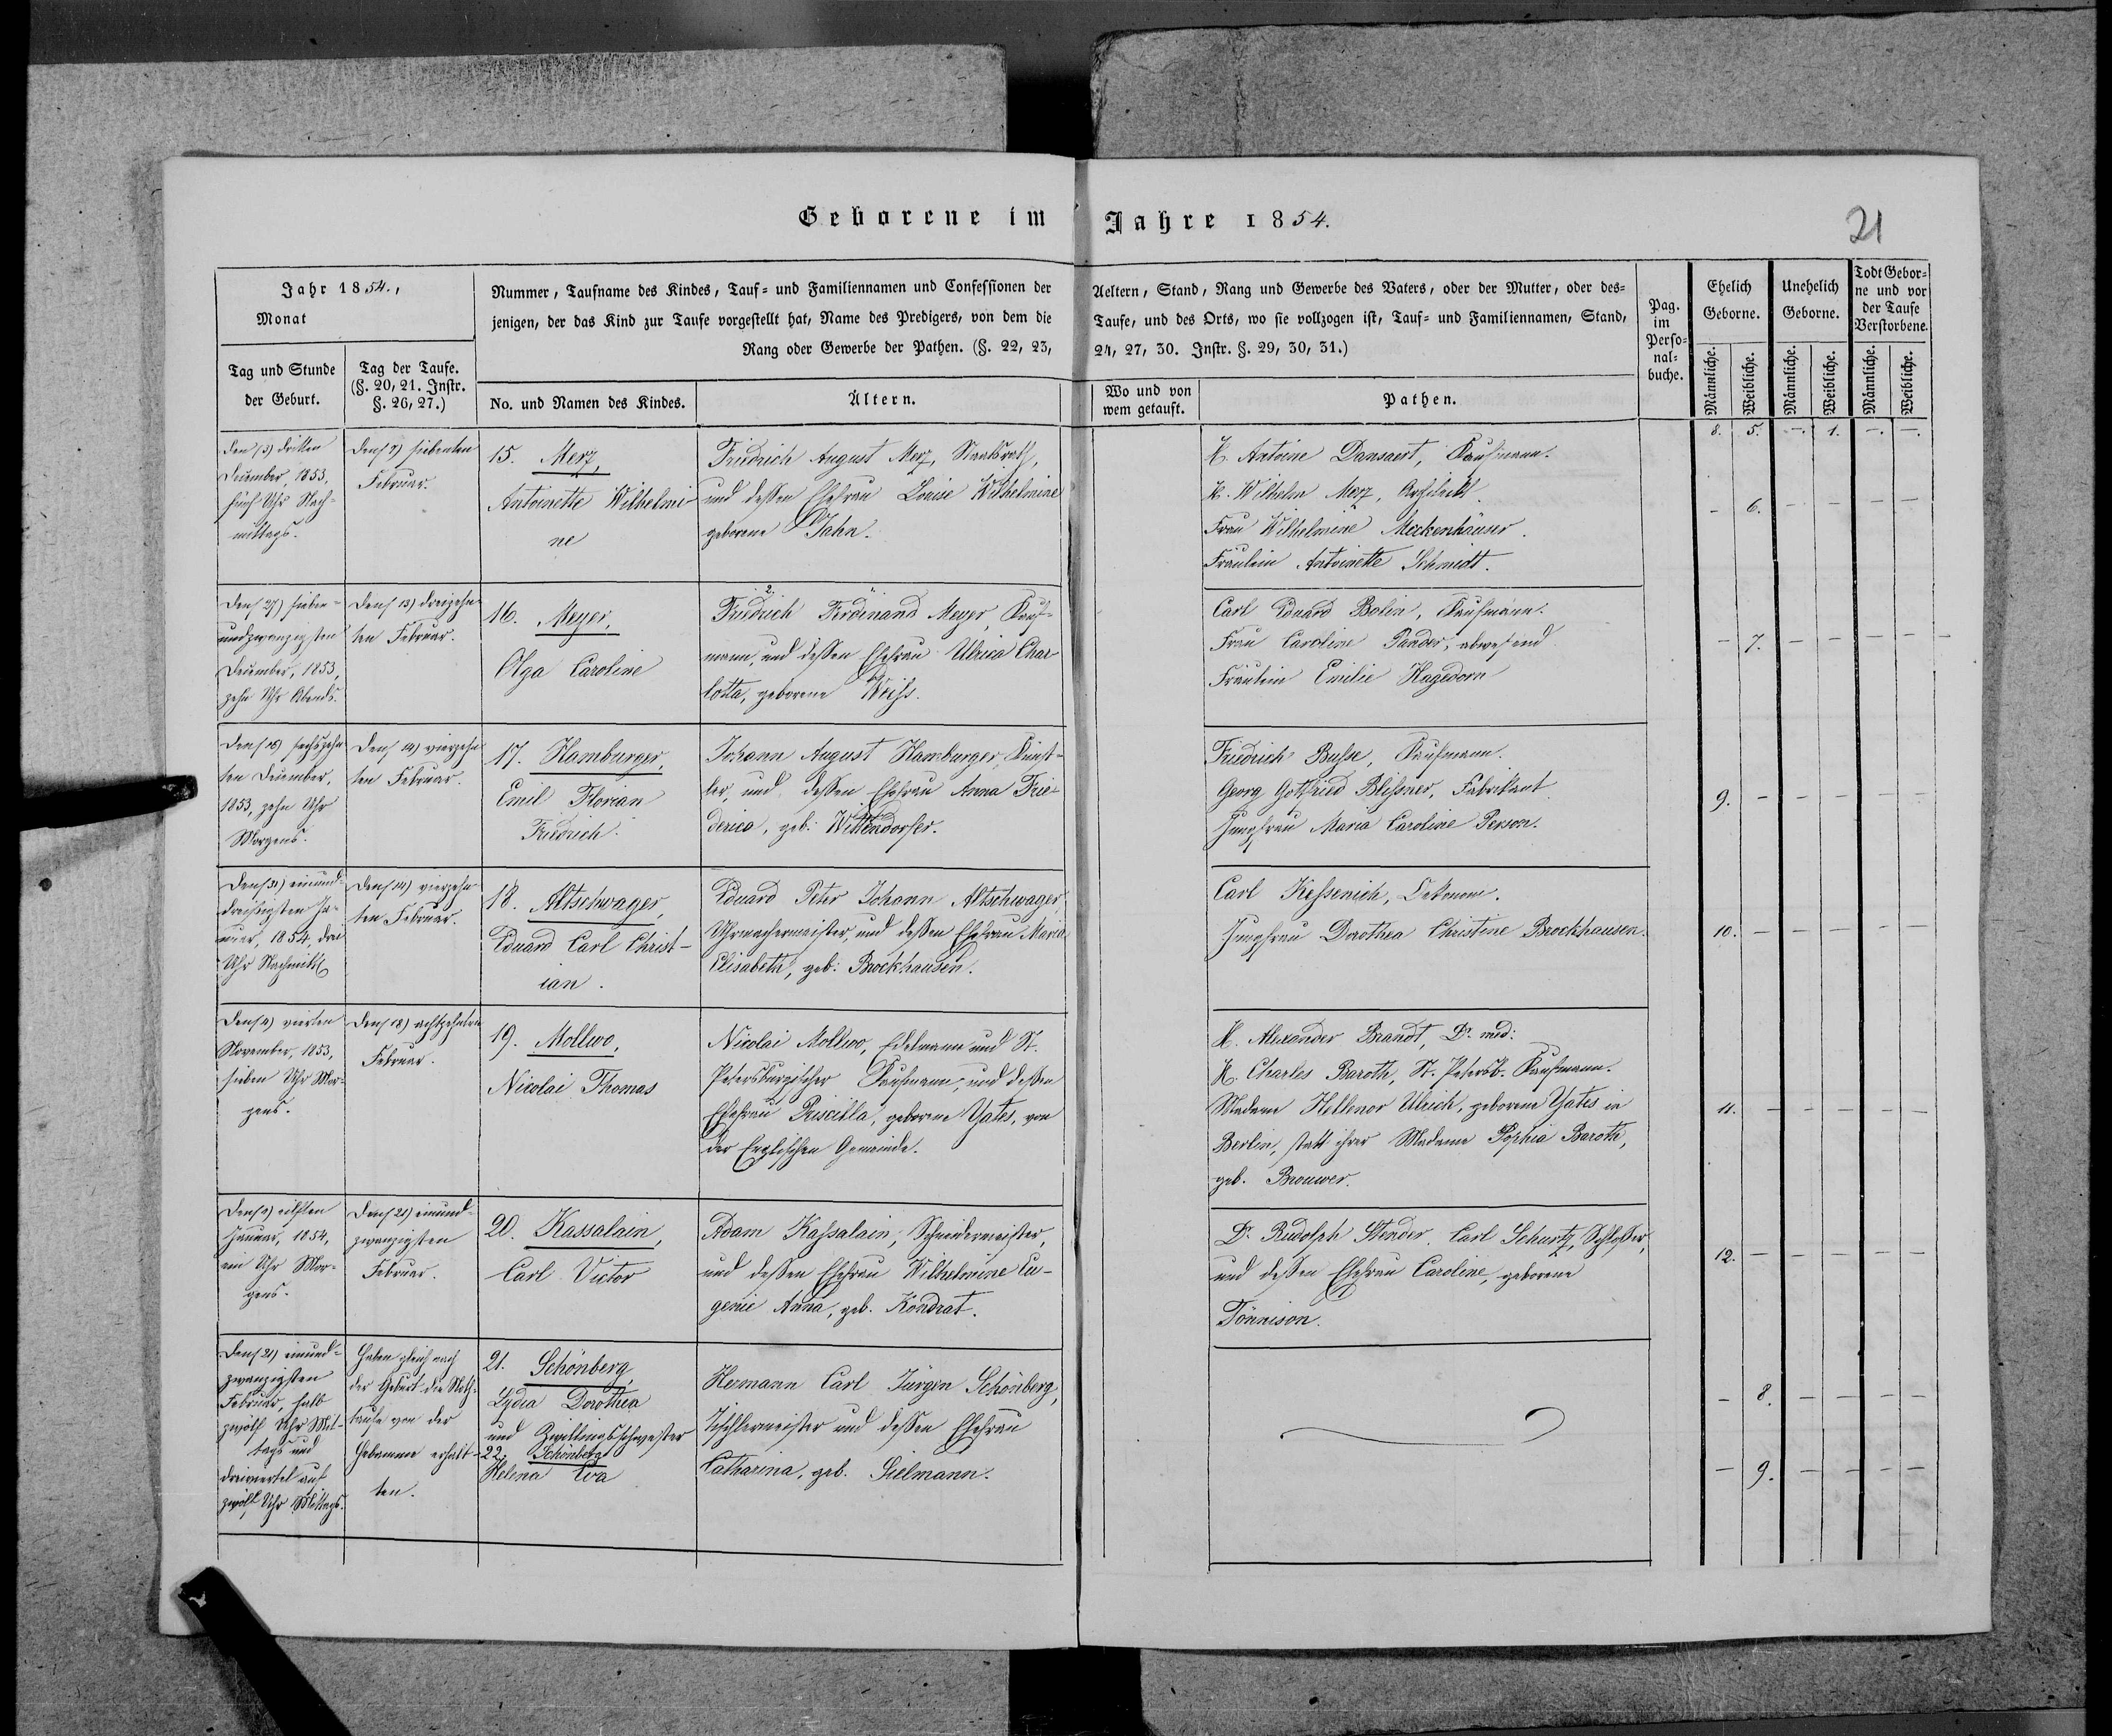 Geborene im Jahre 1854.
21
Jahr 1854.,
Monat
Tag und Stunde
der Geburt.
Tag der Taufe.
(§. 20, 21. Instr.
§. 26, 27.)
Nummer, Taufname des Kindes, Tauf= und Familiennamen und Confessionen der
jenigen, der das Kind zur Taufe vorgestellt hat, Name des Predigers, von dem die
Rang oder Gewerbe der Pathen. (§. 22, 23,
No. und Namen des Kindes.
Ältern.
Aeltern, Stand, Rang und Gewerbe des Vaters, oder der Mutter, oder des=
Taufe, und des Orts, wo sie vollzogen ist, Tauf= und Familiennamen, Stand,
24, 27, 30. Instr. §. 29, 30, 31.)
Wo und von
wem getauft.
Pathen.
Pag.
im
Perso=
nal=
buche.
Ehelich
Geborne.
Unehelich
Geborne.
Todt Gebor=
ne und vor
der Taufe
Verstorbene.
Männliche.
Weibliche.
Männliche.
Weibliche.
Männliche.
Weibliche.
8. 5. –. 1. –. –.
den (3) dritten
December, 1853,
fünf Uhr Nach=
mittags.
den (7) siebenten
Februar.
15. Merz,
Antoinette Wilhelmi
ne
Friedrich August Merz, Staatsrath,
und dessen Ehefrau Louise Wilhelmine
geborene Jahn.
H. Antoine Dansaert, Kaufmann.
H. Wilhelm Merz, Architekt.
Frau Wilhelmine Meckenhäuser.
Fräulein Antoinette Schmidt.
– 6. – – – –
Den (27) sieben=
undzwanzigsten
December, 1853,
zehn Uhr Abends.
Den (13) dreizehn
ten Februar.
16. Meyer,
Olga Caroline
2.
Friedrich Ferdinand Meyer, Kauf=
mann, und dessen Ehefrau Ulrica Char
lotta, geborene Weiss.
Carl Eduard Bolin, Kaufmann.
Frau Caroline Pander, abwesend
Fräulein Emilie Hagedorn
– 7. – – – –
Den (16) sechszehn
ten December,
1853, zehn Uhr
Morgens.
Den (14) vierzehn
ten Februar.
17. Hamburger,
Emil Florian
Friedrich.
Johann August Hamburger, Künst=
ler, und dessen Ehefrau Anna Frie=
derica, geb. Wittendorfer.
Friedrich Busse, Kaufmann.
Georg Gottfried Blissner, Fabrikant
Jungfrau Maria Caroline Person.
9. – – – – –
Den (31) einund=
dreißigsten Ja=
nuar, 1854, drei
Uhr Nachmitt.
Den (14) vierzehn
ten Februar.
18. Altschwager,
Eduard Carl Christ=
ian.
Eduard Peter Johann Altschwager,
Uhrmachermeister, und dessen Ehefrau Maria
Elisabeth, geb. Brockhausen.
Carl Kessenich, Oekonom.
Jungfrau Dorothea Christine Brockhausen.
10. – – – – –
Den (4) vierten
November, 1853,
sieben Uhr Mor=
gens.
Den (18) achtzehnten
Februar.
19. Mollwo,
Nicolai Thomas
Nicolai Mollwo, Edelmann und St.
Petersburgischer Kaufmann, und dessen
Ehefrau Priscilla, geborene Yates, von
der Englischen Gemeinde.
H. Alexander Brandt, Dr. med:
H. Charles Baroth, St. Petersb. Kaufmann.
Madame Hellenor Ulrich, geborene Yates in
Berlin, statt ihrer Madame Sophia Baroth,
geb. Brouwer.
11. – – – – –
eilften
Januar, 1854,
ein Uhr Mor=
gens.
Den (21) einund=
zwanzigsten
Februar.
20. Kassalain,
Carl Victor
Adam Kassalain, Schneidermeister,
und dessen Ehefrau Wilhelmine Eu=
genie Anna, geb. Kondrat.
Dr. Rudolph Stender. Carl Schurtz, Schlosser,
und dessen Ehefrau Caroline, geborene
Tönnison.
12. – – – – –
Den (21) einund=
zwanzigsten
Februar, halb
zwölf Uhr Mit=
tags und
dreiviertel auf
zwölf Uhr Mittags.
Haben gleich nach
der Geburt die Noth=
taufe von der
Hebamme erhal=
ten.
21. Schönberg,
Lydia Dorothea
und Zwillingsschwester
22. Schönberg
Helena Eva
Hermann Carl Jürgen Schönberg,
Tischlermeister und dessen Ehefrau
Catharina, geb. Sielmann.
– 8. – – – –
– 9. – – – –